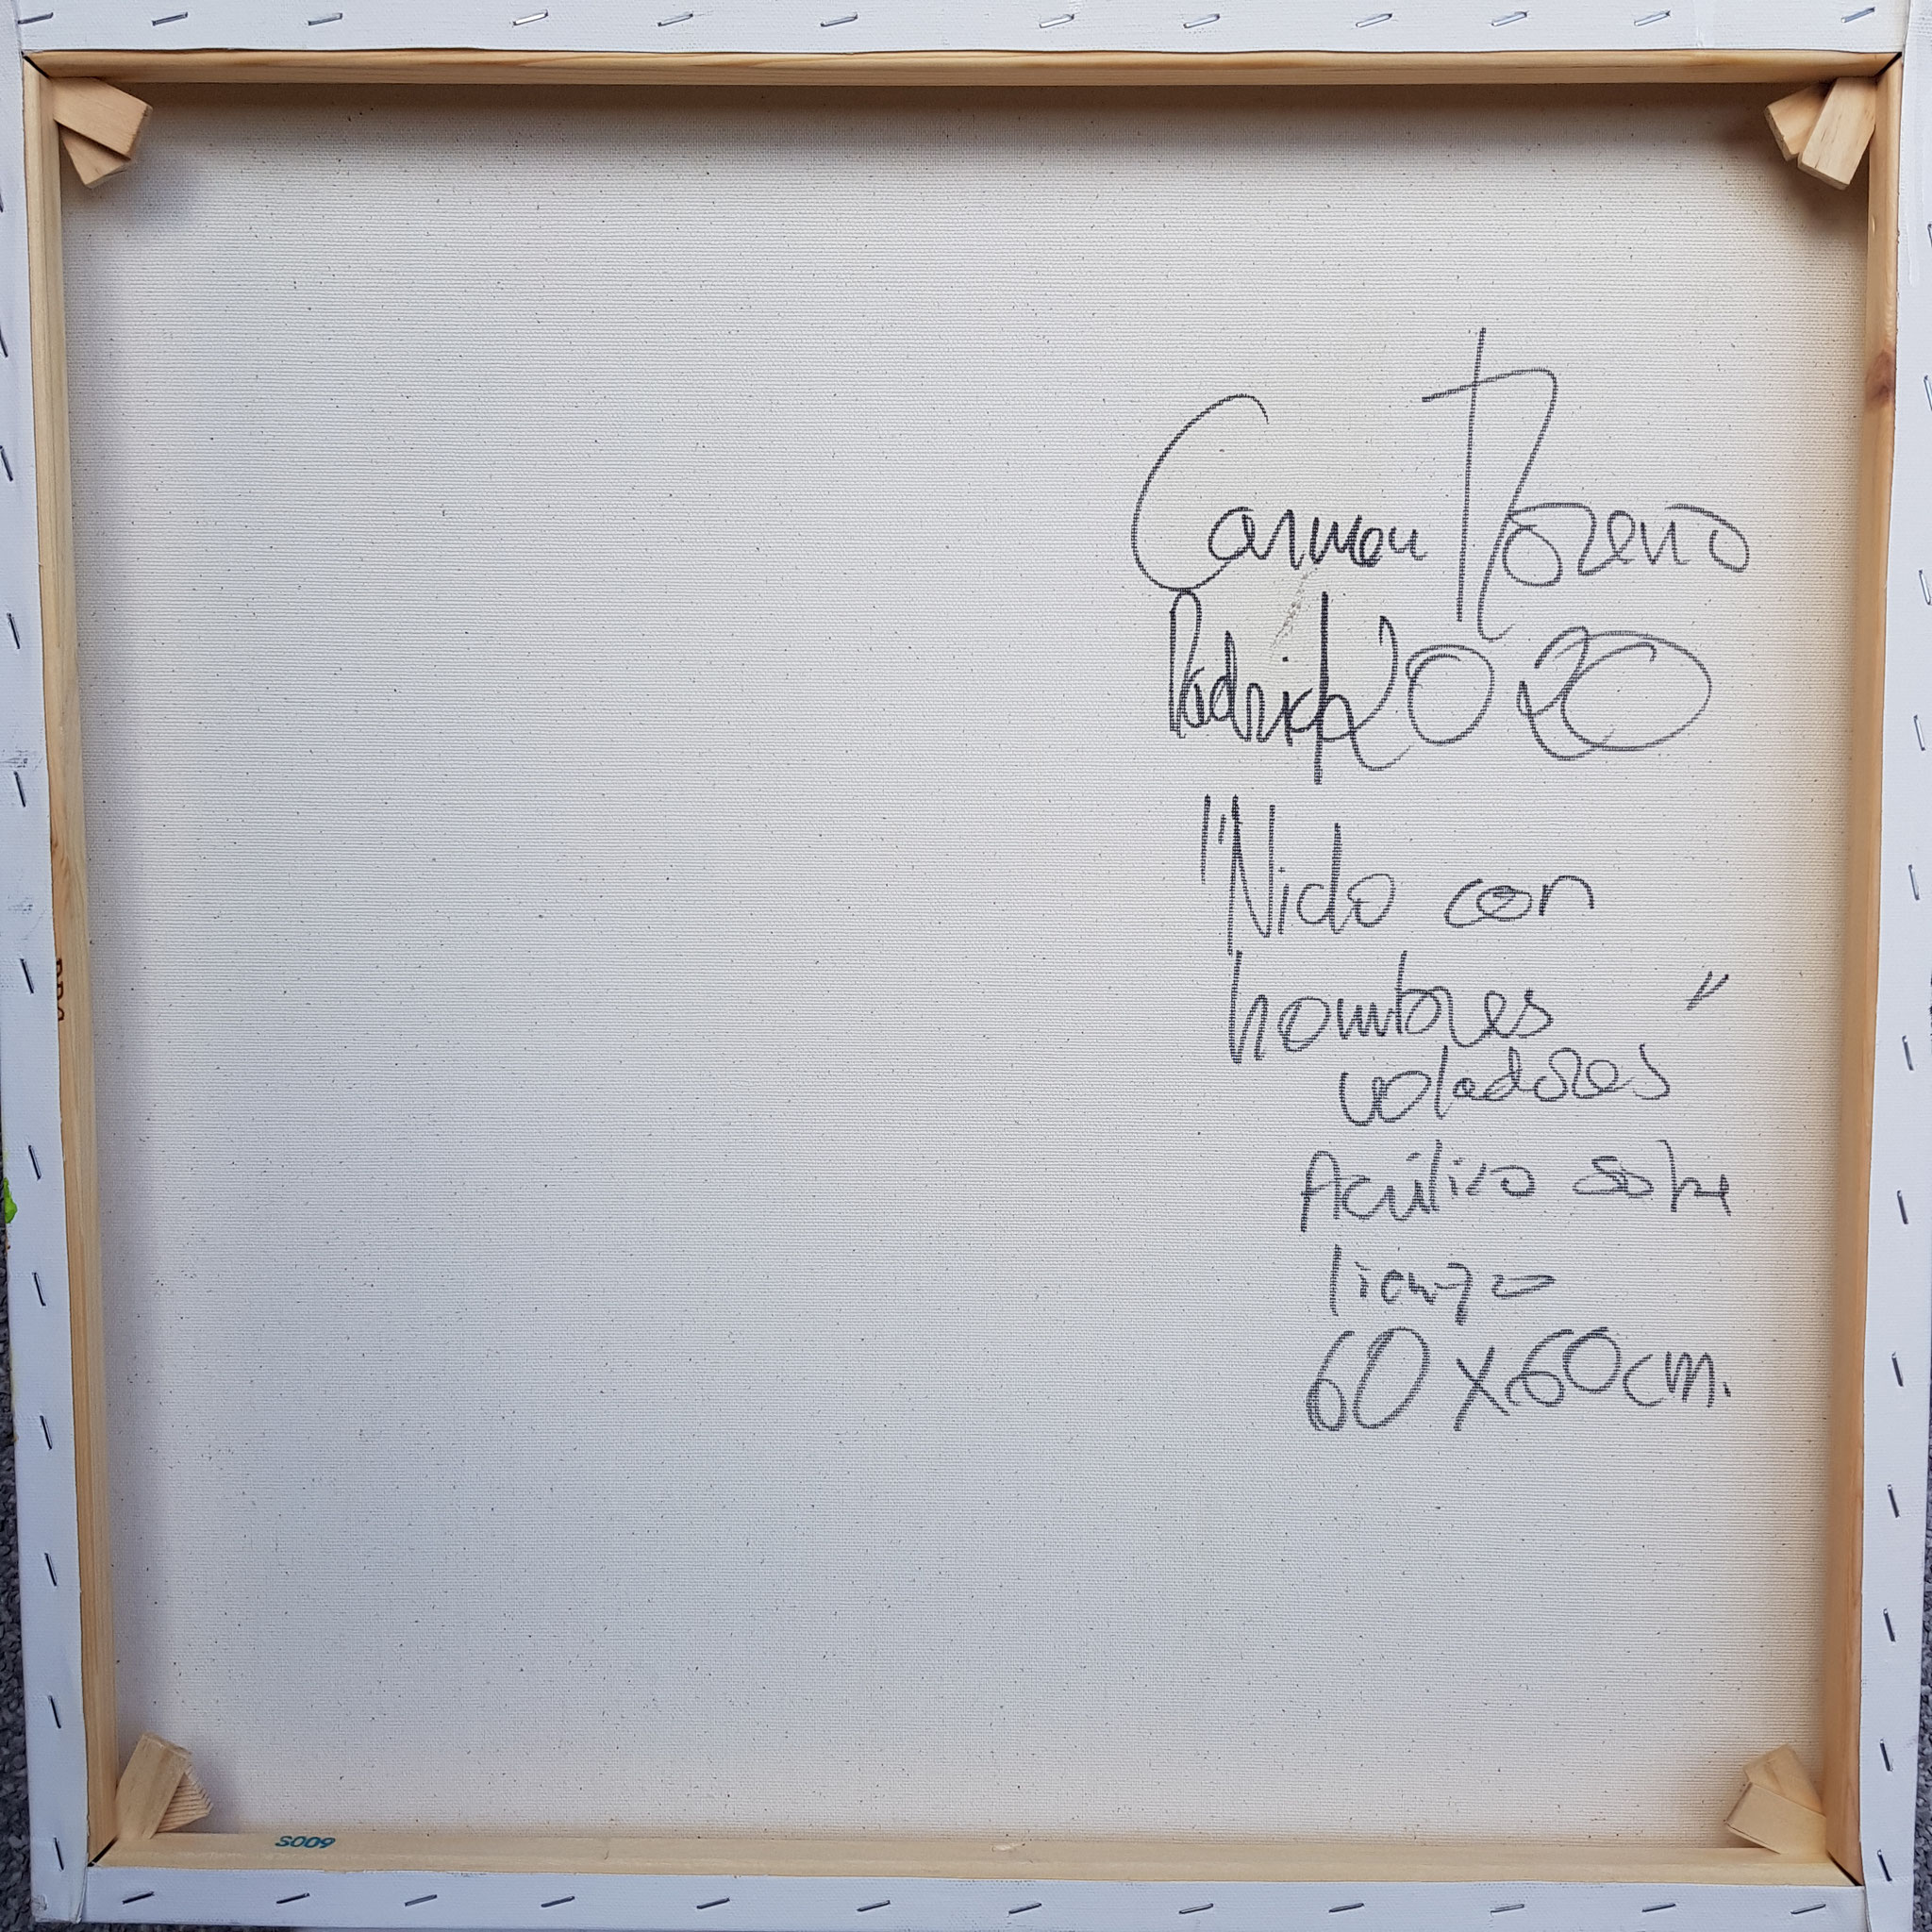 Carmen Moreno
Madrid 2020
"Nido con
hombres "
voladores
Acrílico sobre
lienzo
60 x 60 cm.
S009